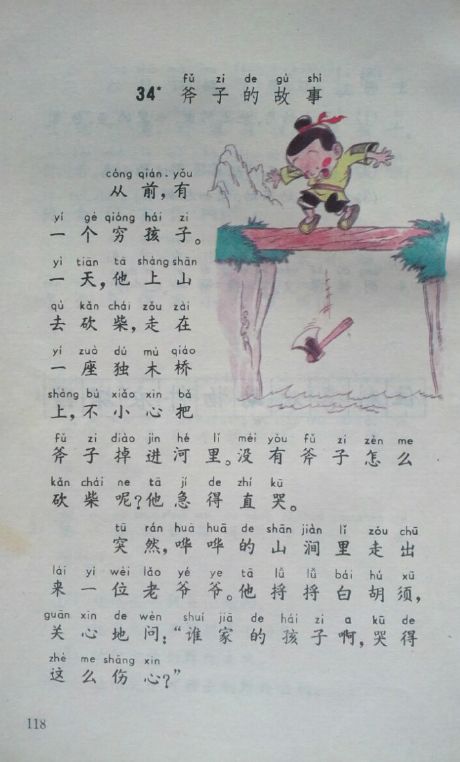 fǔ zi de gù shi
34* 斧子的故事
cóng qián, yǒu
从前,有
yí gè qióng hái zi
一个穷孩子。
yì tiān tā shàng shān
一天,他上山
qù kǎn chái zǒu zài
去砍柴,走在
yí zuò dú mù qiáo
一座独木桥
shàng bù xiǎo xīn bǎ
上,不小心把
fǔ zi diào jìn hé lǐ méi yǒu fǔ zi zěn me
斧子掉进河里。没有斧子怎么
kǎn chái ne tā jí de zhí kū
砍柴呢?他急得直哭。
tū rán huā huā de shān jiàn lǐ zǒu chū
突然,哗哗的山涧里走出
lái yí wèi lǎo yé ye tā lǚ lǚ bái hú xū
来一位老爷爷。他捋捋白胡须,
guān xīn de wèn shuí jiā de hái zi a kū de
关心地问:“谁家的孩子啊,哭得
zhè me shāng xīn
这么伤心?”
118